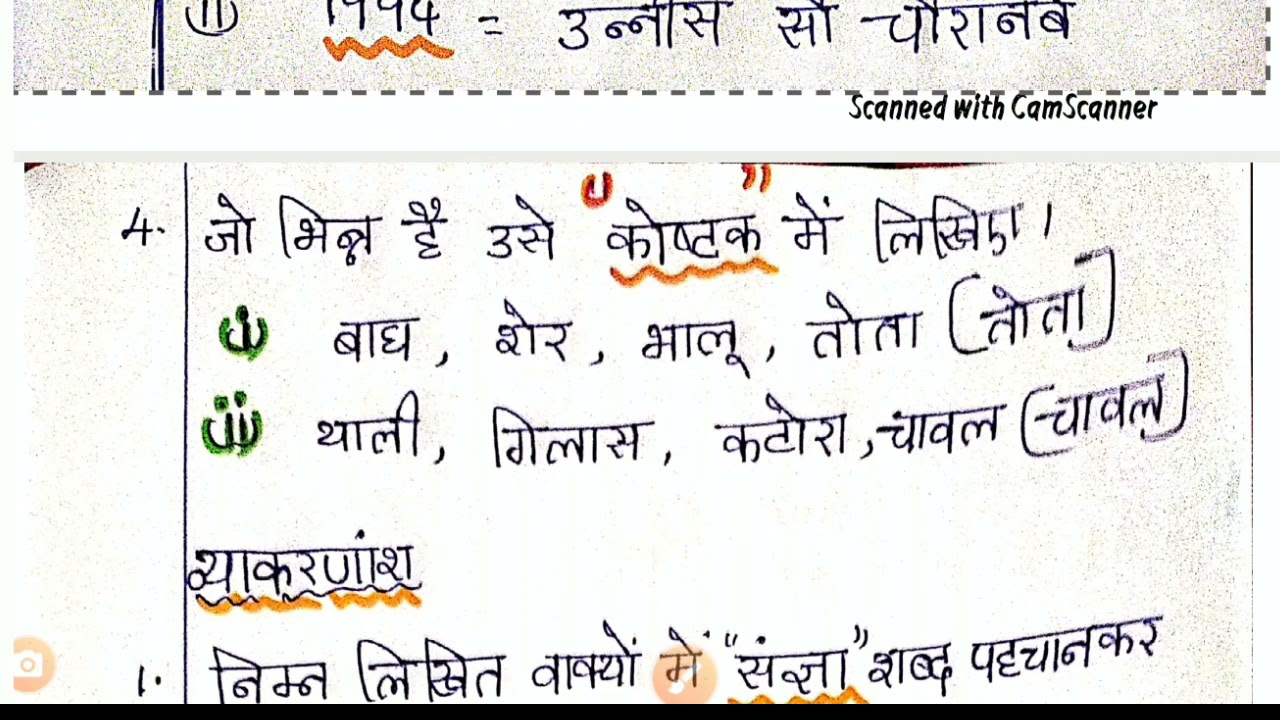 ii) १९९४ = उन्नीस सौ चौरानबे
Scanned with CamScanner
4. जो भिन्न है उसे "कोष्टक" में लिखिए।
i) बाघ, शेर, भालू, तोता (तोता)
ii) थाली, गिलास, कटोरा, चावल (चावल)
व्याकरणांश
1. निम्न लिखित वाक्यों में "संज्ञा" शब्द पहचानकर